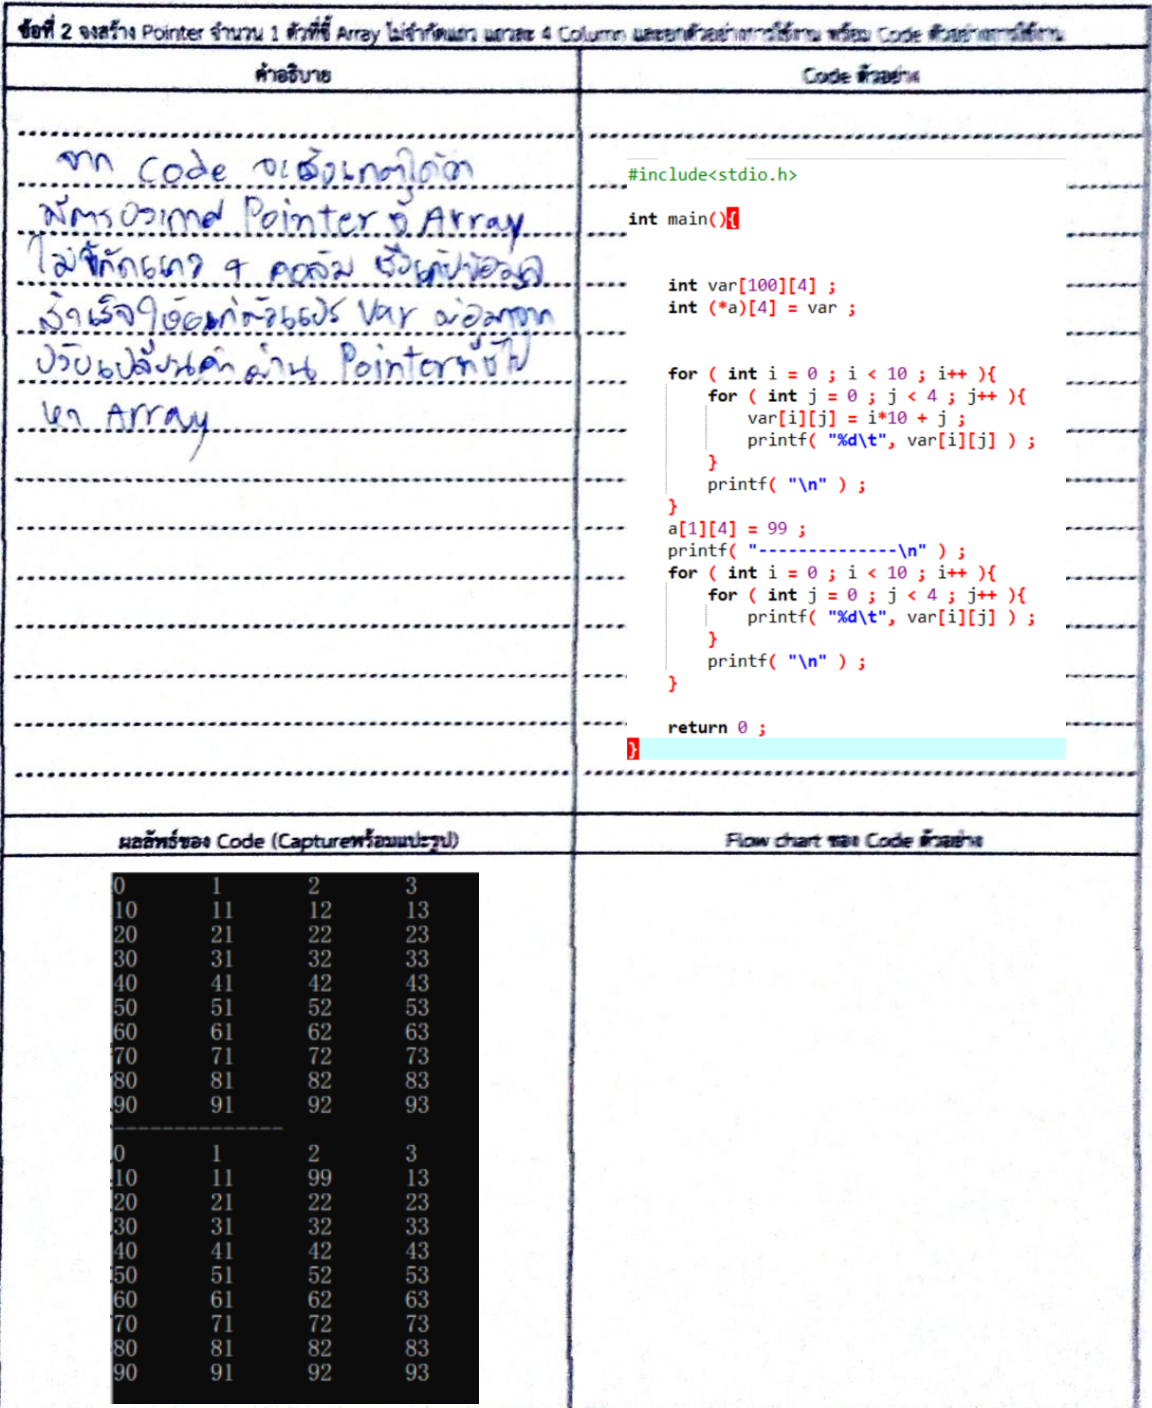 ข้อที่ 2 จงสร้าง Pointer จำนวน 1 ตัวที่ชี้ Array ไม่จำกัดแถว แถวละ 4 Column และยกตัวอย่างการใช้งาน พร้อม Code ตัวอย่างการใช้งาน
คำอธิบาย
จาก Code จะสังเกตได้ว่า
มีการประกาศ Pointer ชี้ Array
ไม่จำกัดแถว 4 คอลัม
Var
เปลี่ยนค่าผ่าน Pointer ที่ชี้ไป
หา Array
Code ตัวอย่าง
#include<stdio.h>
int main(){
int var[100][4] ;
int (*a)[4] = var ;
for ( int i = 0 ; i < 10 ; i++ ){
for ( int j = 0 ; j < 4 ; j++ ){
var[i][j] = i*10 + j ;
printf( "%d\t", var[i][j] ) ;
}
printf( "\n" ) ;
}
a[1][4] = 99 ;
printf( "--------------\n" ) ;
for ( int i = 0 ; i < 10 ; i++ ){
for ( int j = 0 ; j < 4 ; j++ ){
printf( "%d\t", var[i][j] ) ;
}
printf( "\n" ) ;
}
return 0 ;
}
ผลลัพธ์ของ Code (Captureพร้อมแปะรูป)
0 1 2 3
10 11 12 13
20 21 22 23
30 31 32 33
40 41 42 43
50 51 52 53
60 61 62 63
70 71 72 73
80 81 82 83
90 91 92 93
--------------
0 1 2 3
10 11 99 13
20 21 22 23
30 31 32 33
40 41 42 43
50 51 52 53
60 61 62 63
70 71 72 73
80 81 82 83
90 91 92 93
Flow chart ของ Code ตัวอย่าง